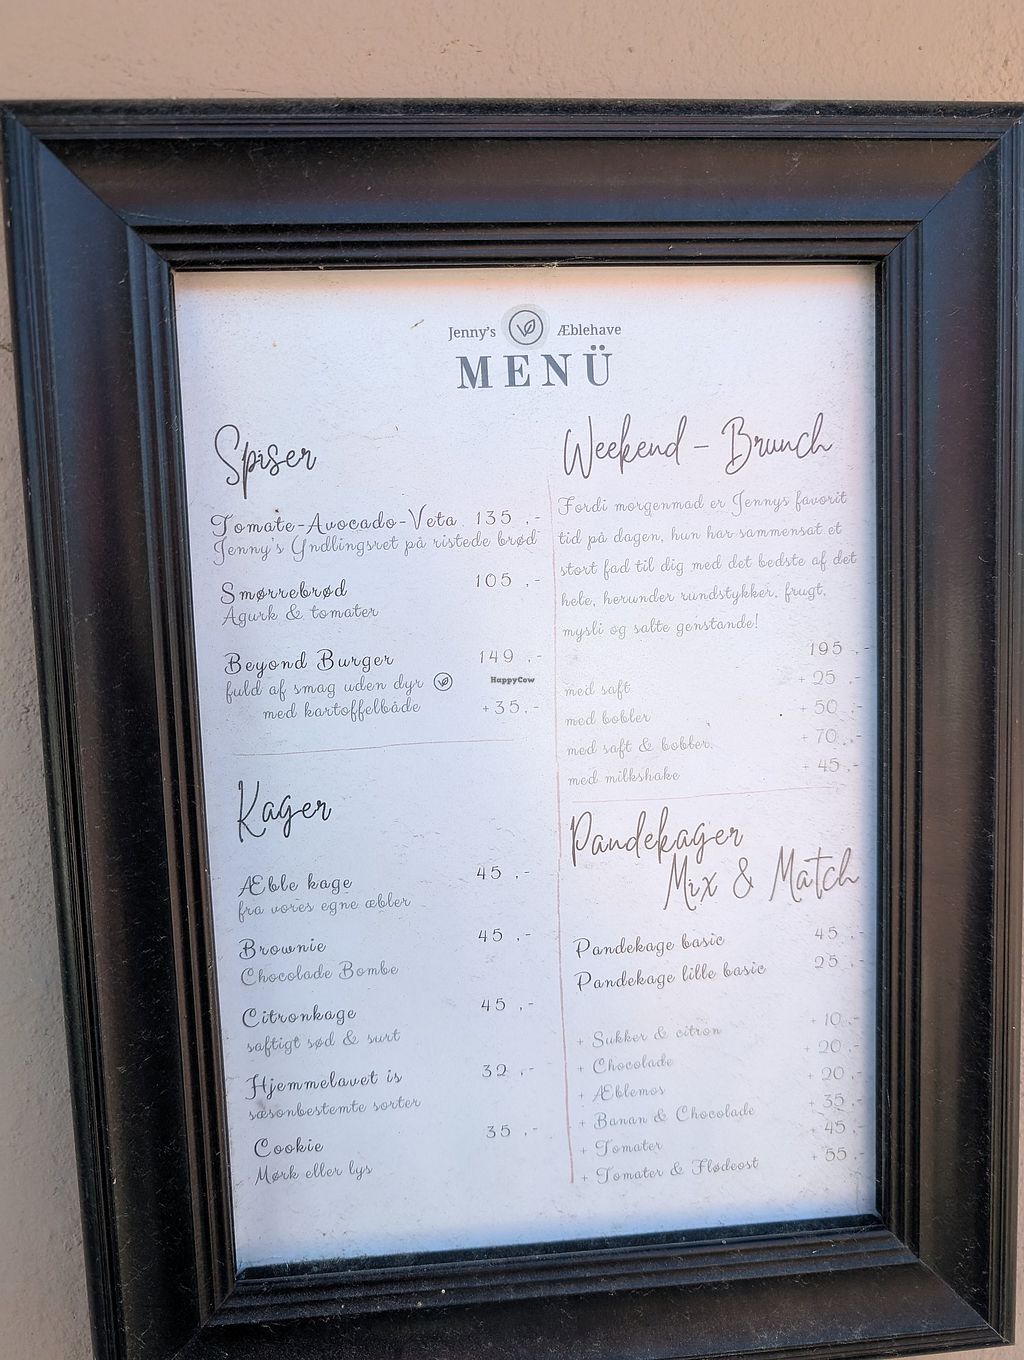 Jenny's Æblehave
MENÜ
Spiser
Tomate-Avocado-Veta 135 ,-
Jenny's Yndlingsret på ristede brød
Smørrebrød 105 ,-
Agurk & tomater
Beyond Burger 149 ,-
fuld af smag uden dyr
HappyCow
med kartoffelbåde +35,-
Kager
Æble kage 45 ,-
fra vores egne æbler
Brownie 45 ,-
Chocolade Bombe
Citronkage 45 ,-
saftigt sød & surt
Hjemmelavet is 32 ,-
sæsonbestemte sorter
Cookie 35 ,-
Mørk eller lys
Weekend - Brunch
Fordi morgenmad er Jennys favorit
tid på dagen, hun har sammensat et
stort fad til dig med det bedste af det
hele, herunder rundstykker, frugt,
mysli og salte genstande!
195 ,-
med saft +25 ,-
med bobler +50 ,-
med saft & bobber. +70 ,-
med milkshake +45 ,-
Pandekager
Mix & Match
Pandekage basic 45 ,-
Pandekage lille basic 25 ,-
+ Sukker & citron +10 ,-
+ Chocolade +20 ,-
+ Æblemos +20 ,-
+ Banan & Chocolade +35 ,-
+ Tomater +45 ,-
+ Tomater & Flødeost +55 ,-